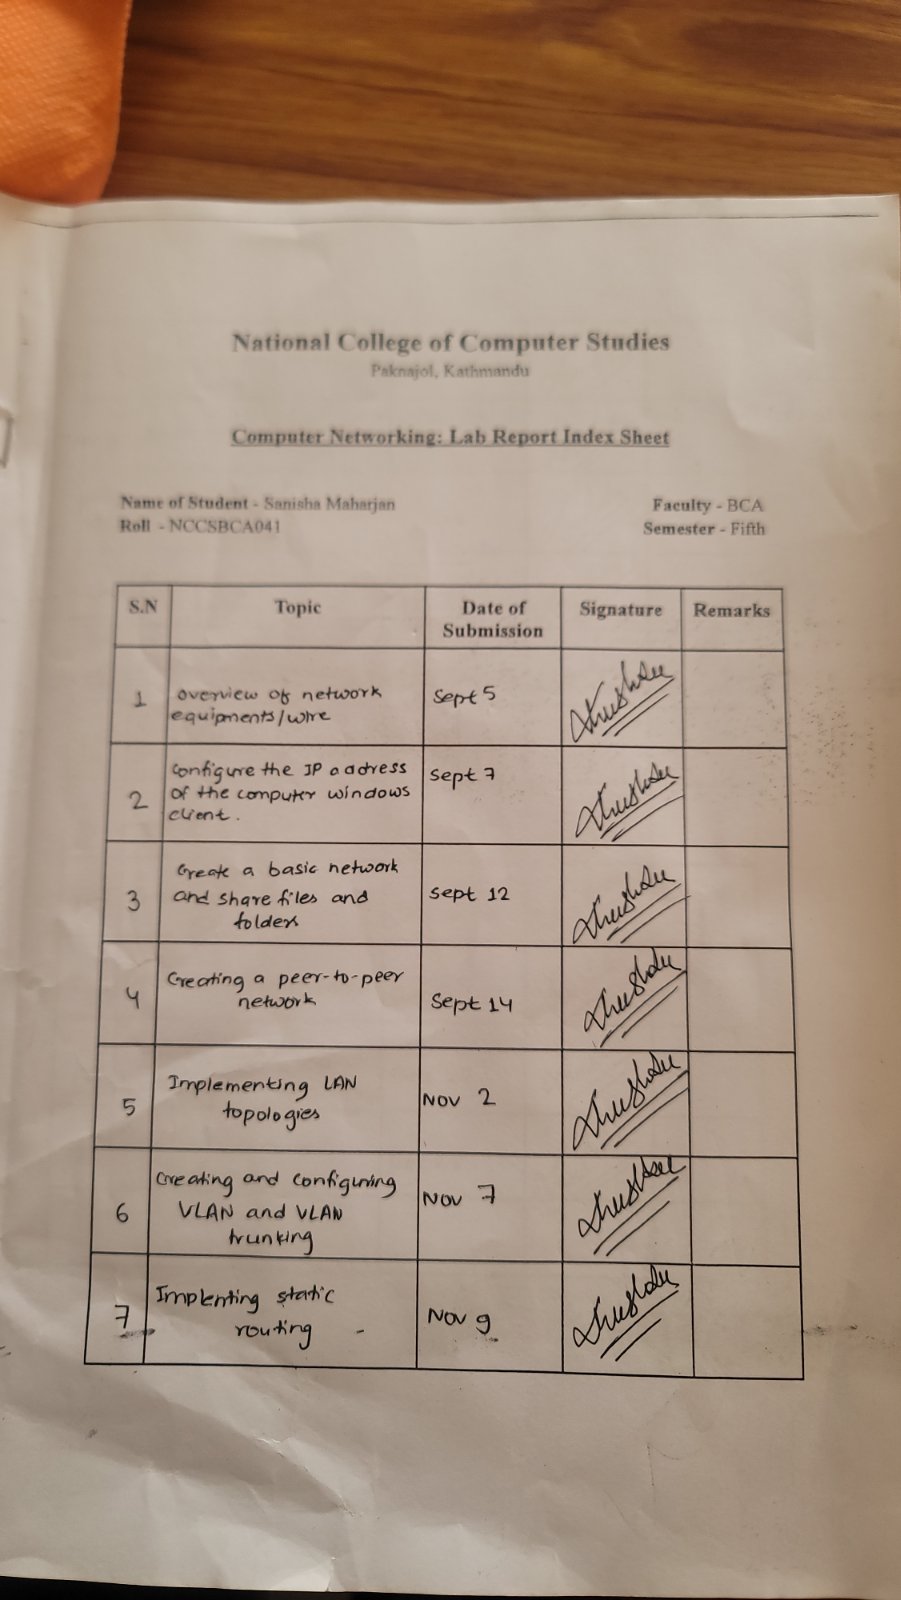 National College of Computer Studies
Paknajol, Kathmandu
Computer Networking: Lab Report Index Sheet
Name of Student - Sanisha Maharjan
Faculty - BCA
Roll - NCCSBCA041
Semester - Fifth
S.N Topic Date of Submission Signature Remarks
1 overview of network equipments/wire Sept 5
2 configure the IP address of the computer windows client. Sept 7
3 Create a basic network and share files and folders Sept 12
4 Creating a peer-to-peer network Sept 14
5 Implementing LAN topologies Nov 2
6 Creating and configuring VLAN and VLAN trunking Nov 7
7 Implenting static routing Nov 9